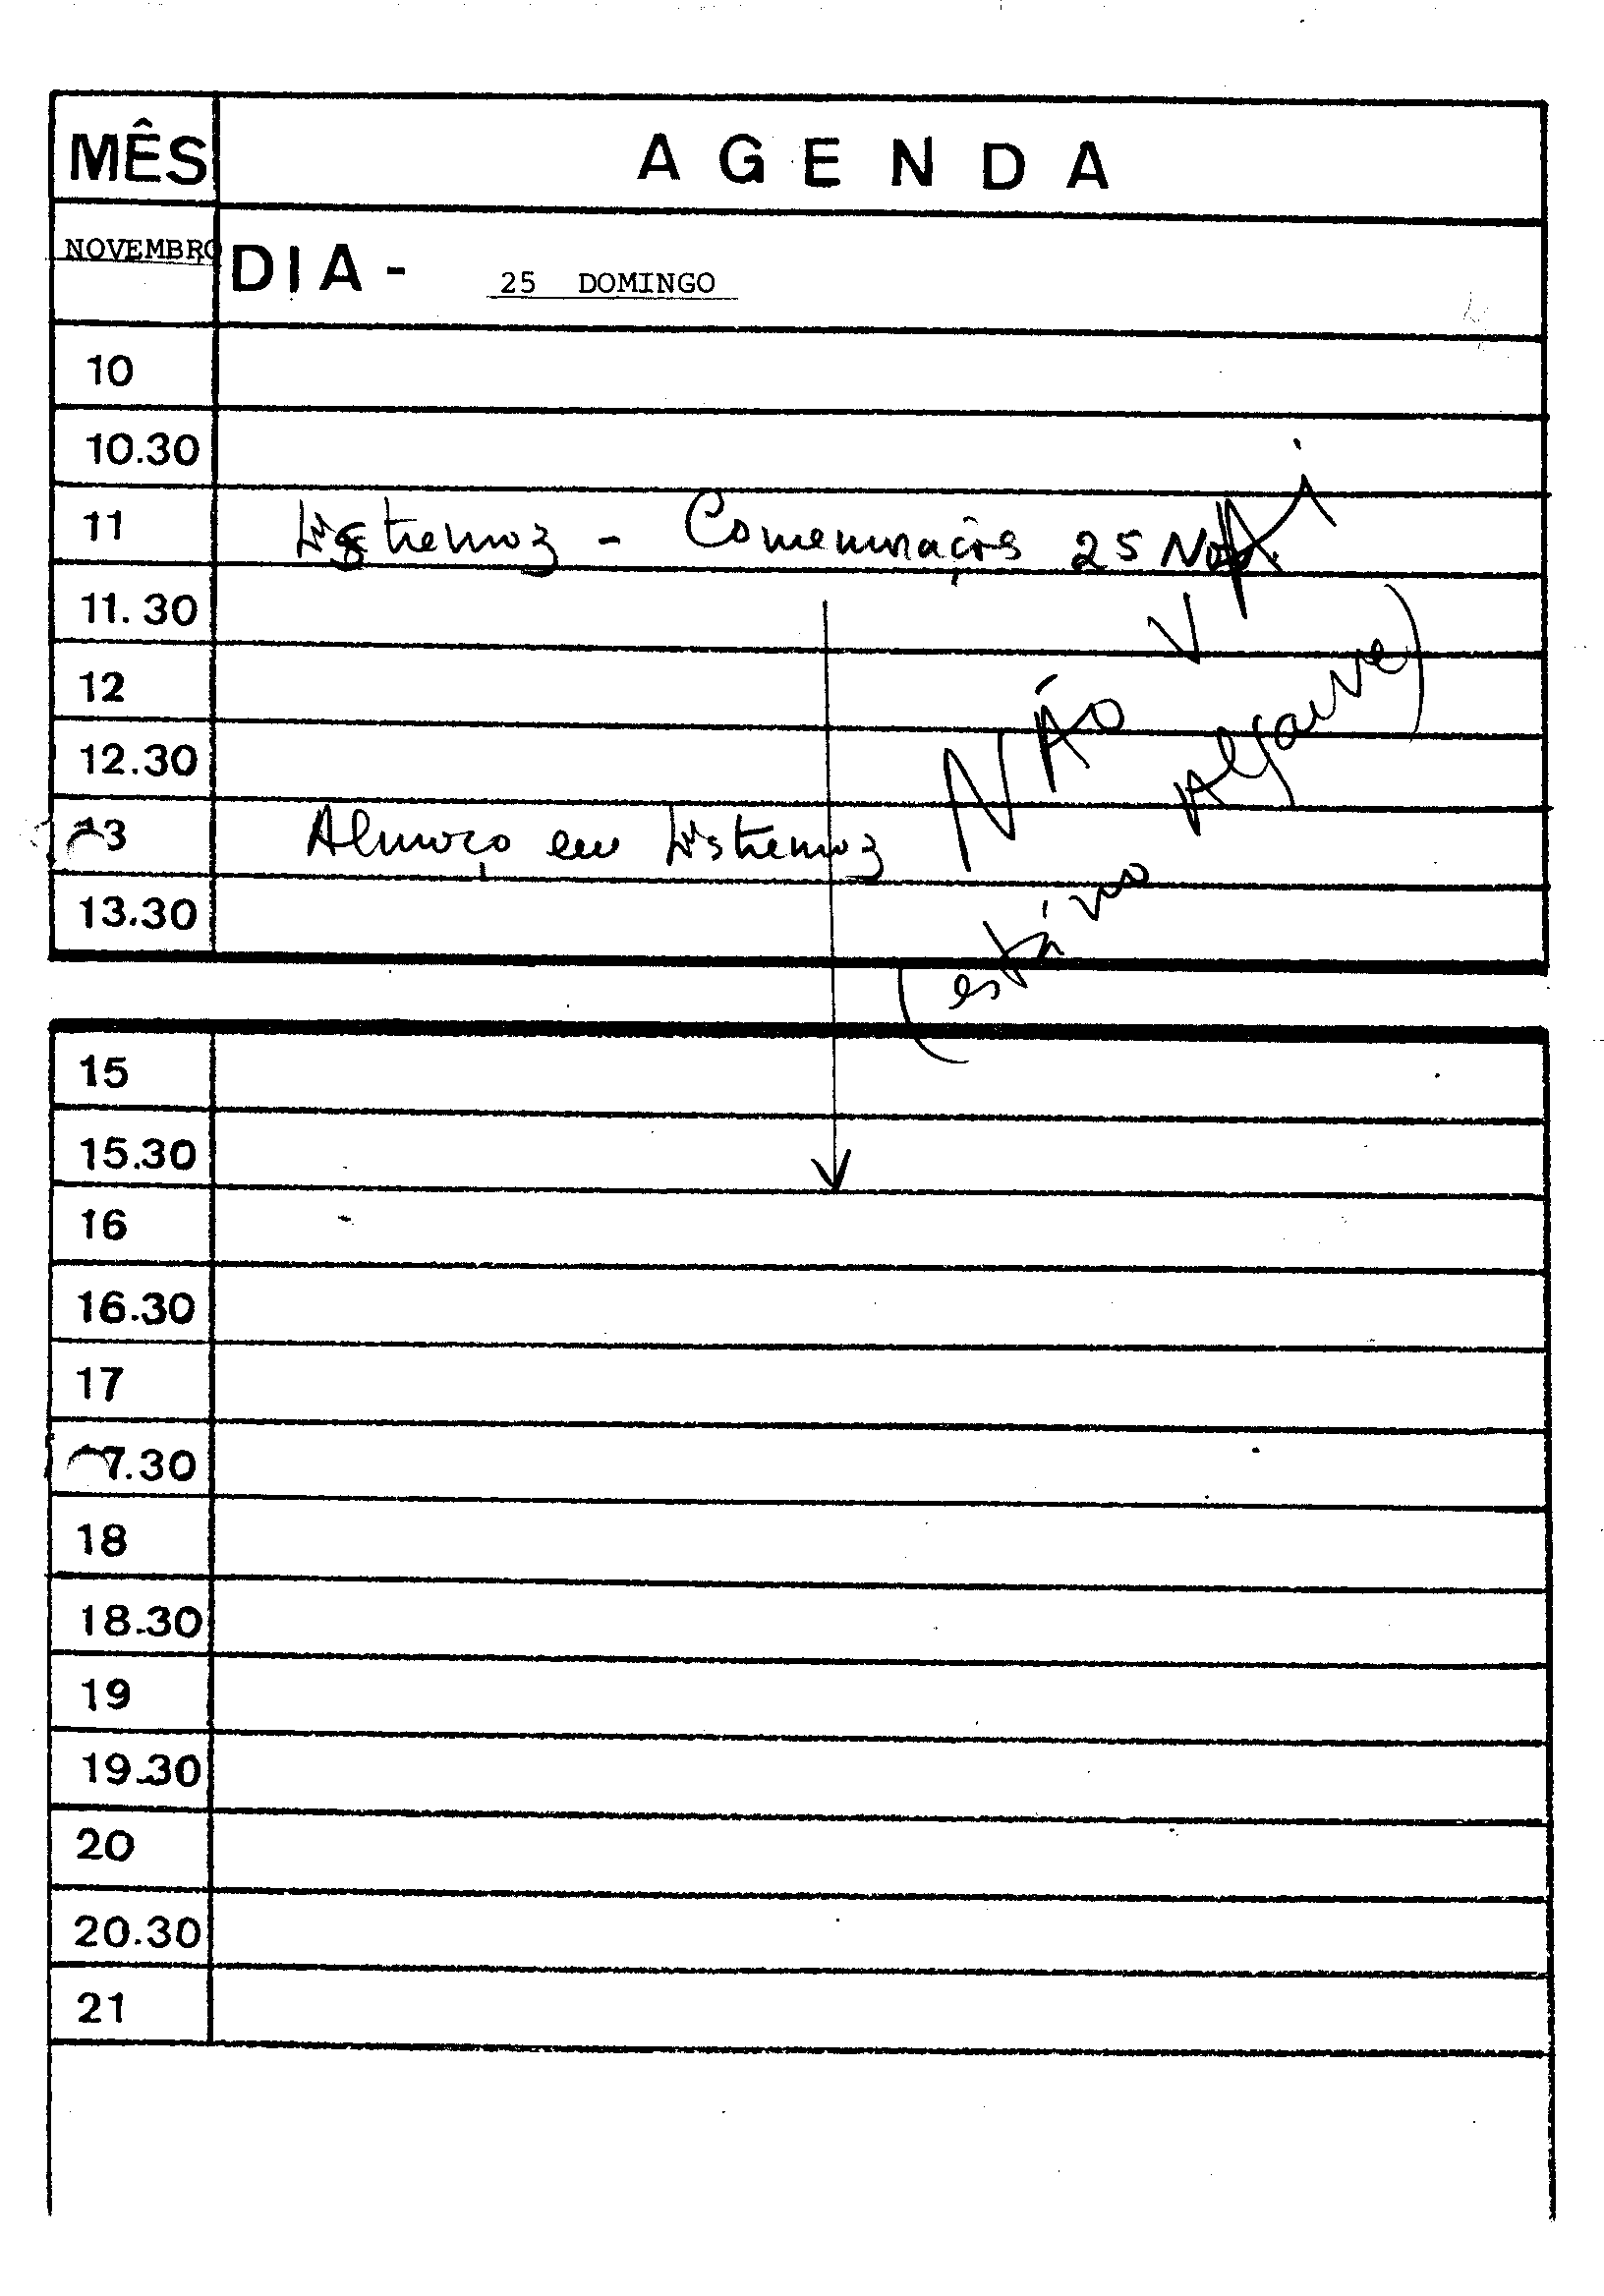 MÊS AGENDA
NOVEMBRO DIA - 25 DOMINGO
10
10.30
11 Estremoz - Comemorações 25 Nov.
11.30
12
12.30
13 Almoço em Estremoz
13.30
NÃO VAI
(está no Algarve)
15
15.30
16
16.30
17
17.30
18
18.30
19
19.30
20
20.30
21